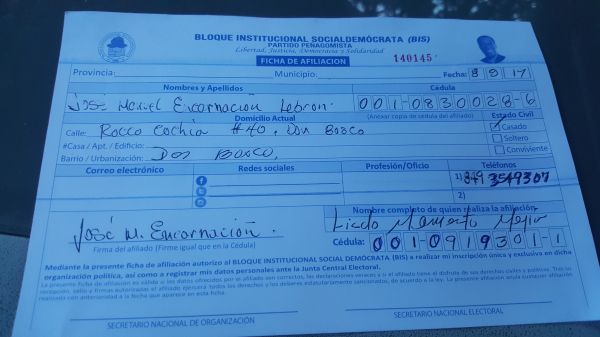 BLOQUE INSTITUCIONAL SOCIALDEMÓCRATA (BIS)
PARTIDO PEÑAGOMISTA
Libertad, Justicia, Democracia y Solidaridad
FICHA DE AFILIACION
140145
Provincia: Municipio: Fecha: 8 9 17
Nombres y Apellidos Cédula
José Manuel Encarnación Lebron. 001-0830028-6
Domicilio Actual (Anexar copia de cédula del afiliado) Estado Civil
Calle: Rocco Cochia #40, Don Bosco Casado
#Casa / Apt. / Edificio: Soltero
Barrio / Urbanización: Don Bosco. Conviviente
Correo electrónico Redes sociales Profesión/Oficio Teléfonos
1) 849 3549307
2)
Nombre completo de quien realiza la afiliación
José M. Encarnación.
Firma del afiliado (Firme igual que en la Cédula) Cédula: 001-0919301-1
Mediante la presente ficha de afiliación autorizo al BLOQUE INSTITUCIONAL SOCIALDEMÓCRATA (BIS) a realizar mi inscripción única y exclusiva en dicha
organización política, así como a registrar mis datos personales ante la Junta Central Electoral.
La presente ficha de afiliación es válida si los datos ofrecidos por el afiliado son correctos, las declaraciones veraces y si el afiliado tiene el disfrute de sus derechos civiles y políticos. Tras su
recepción, sello y firmas autorizadas el afiliado ejercerá todos los derechos y los deberes estatutariamente sancionados, de acuerdo a la ley. La presente afiliación anula cualquier afiliación
realizada con anterioridad a la fecha que aparece en esta ficha.
SECRETARIO NACIONAL DE ORGANIZACIÓN SECRETARIO NACIONAL ELECTORAL